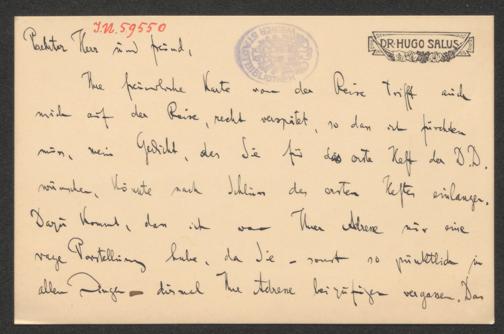 J.N. 59550
DR. HUGO SALUS
Herr und Freund,
Ihre freundliche Karte von der Reise trifft auch
mich auf der Reise, recht verspätet, so dass ich fürchten
muss, mein Gedicht, das Sie für das erste Heft der D.D.
wünschen, könnte nach Schluss des ersten Heftes einlangen.
Dazu kommt, dass ich von Ihrer Adresse nur eine
vage Vorstellung habe, da Sie – sonst so pünktlich in
allen Dingen – diesmal Ihre Adresse beizufügen vergassen. Das